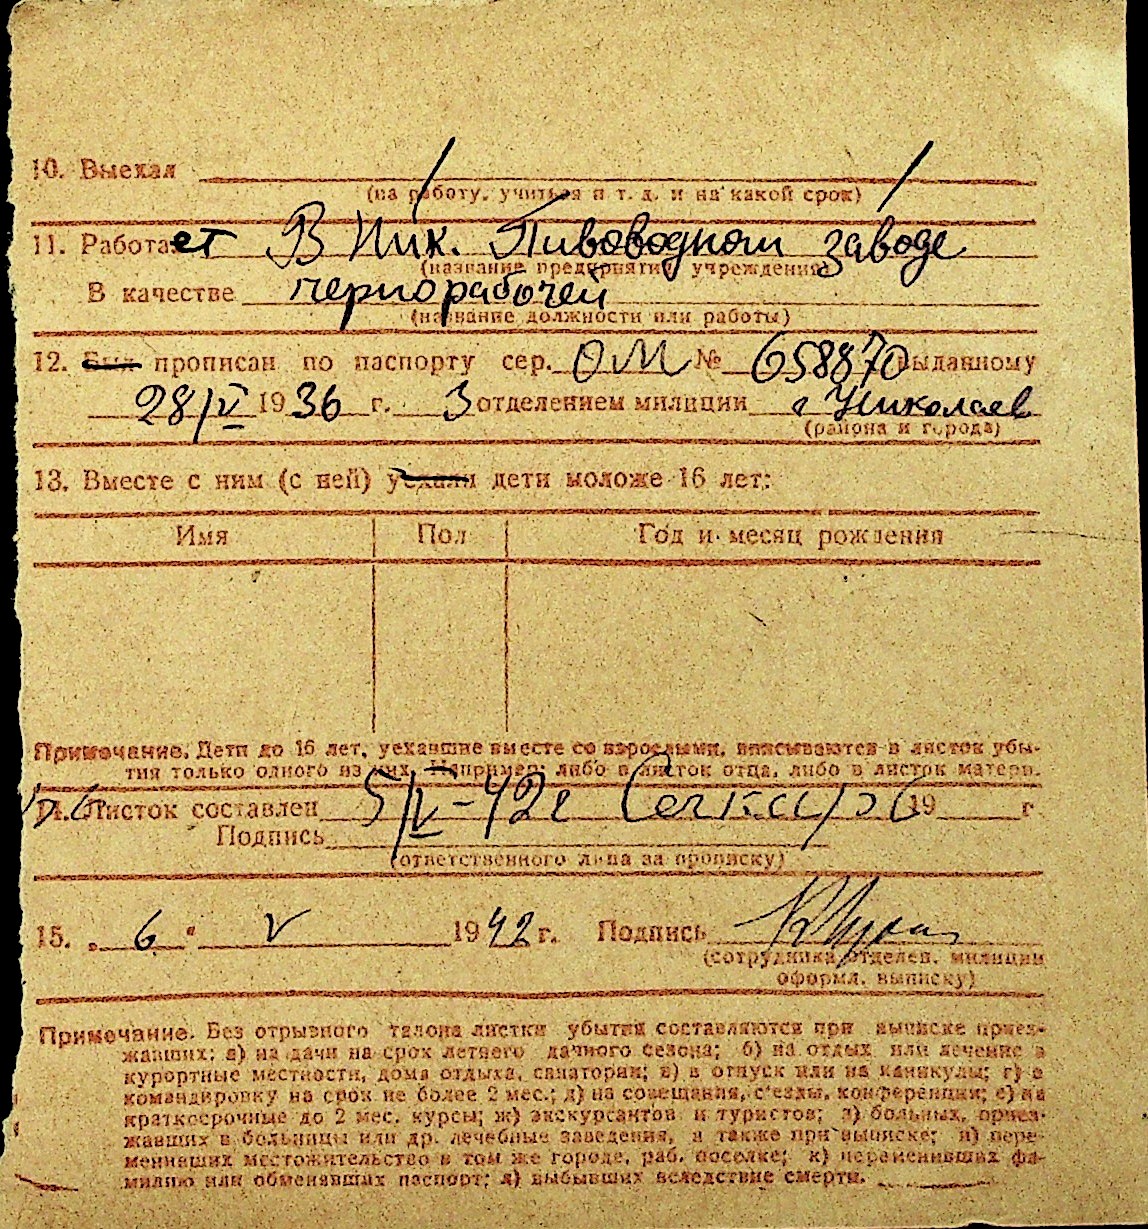 10. Выехал
(на работу, учиться и т. д. и на какой срок)
11. Работает В Ник. Пивоводном заводе
(название предприятия, учреждения)
В качестве чернорабочей
(название должности или работы)
12. Был прописан по паспорту сер. ОМ № 658870 выданному
28/V 1936 г. 3 отделением милиции г Николаев
(района и города)
13. Вместе с ним (с ней) уехали дети моложе 16 лет:
Имя Пол Год и месяц рождения
Примечание. Дети до 16 лет, уехавшие вместе со взрослыми, вписываются в листок убы-
тия только одного из них. Например: либо в листок отца, либо в листок матери.
14. Листок составлен 5/V-42г 19 г
Подпись
(ответственного лица за прописку)
15. „ 6 " V 1942 г. Подпись
(сотрудника отделен. милиции
оформл. выписку)
Примечание. Без отрывного талона листки убытия составляются при выписке приез-
жавших: а) на дачи на срок летнего дачного сезона; б) на отдых или лечение в
курортные местности, дома отдыха, санатории; в) в отпуск или на каникулы; г) в
командировку на срок не более 2 мес.; д) на совещания, с'езды, конференции; е) на
краткосрочные до 2 мес. курсы; ж) экскурсантов и туристов; з) больных, приез-
жавших в больницы или др. лечебные заведения, а также при выписке; и) пере-
менивших местожительство в том же городе, раб. поселке; к) переменивших фа-
милию или обменявших паспорт; л) выбывших вследствие смерти.